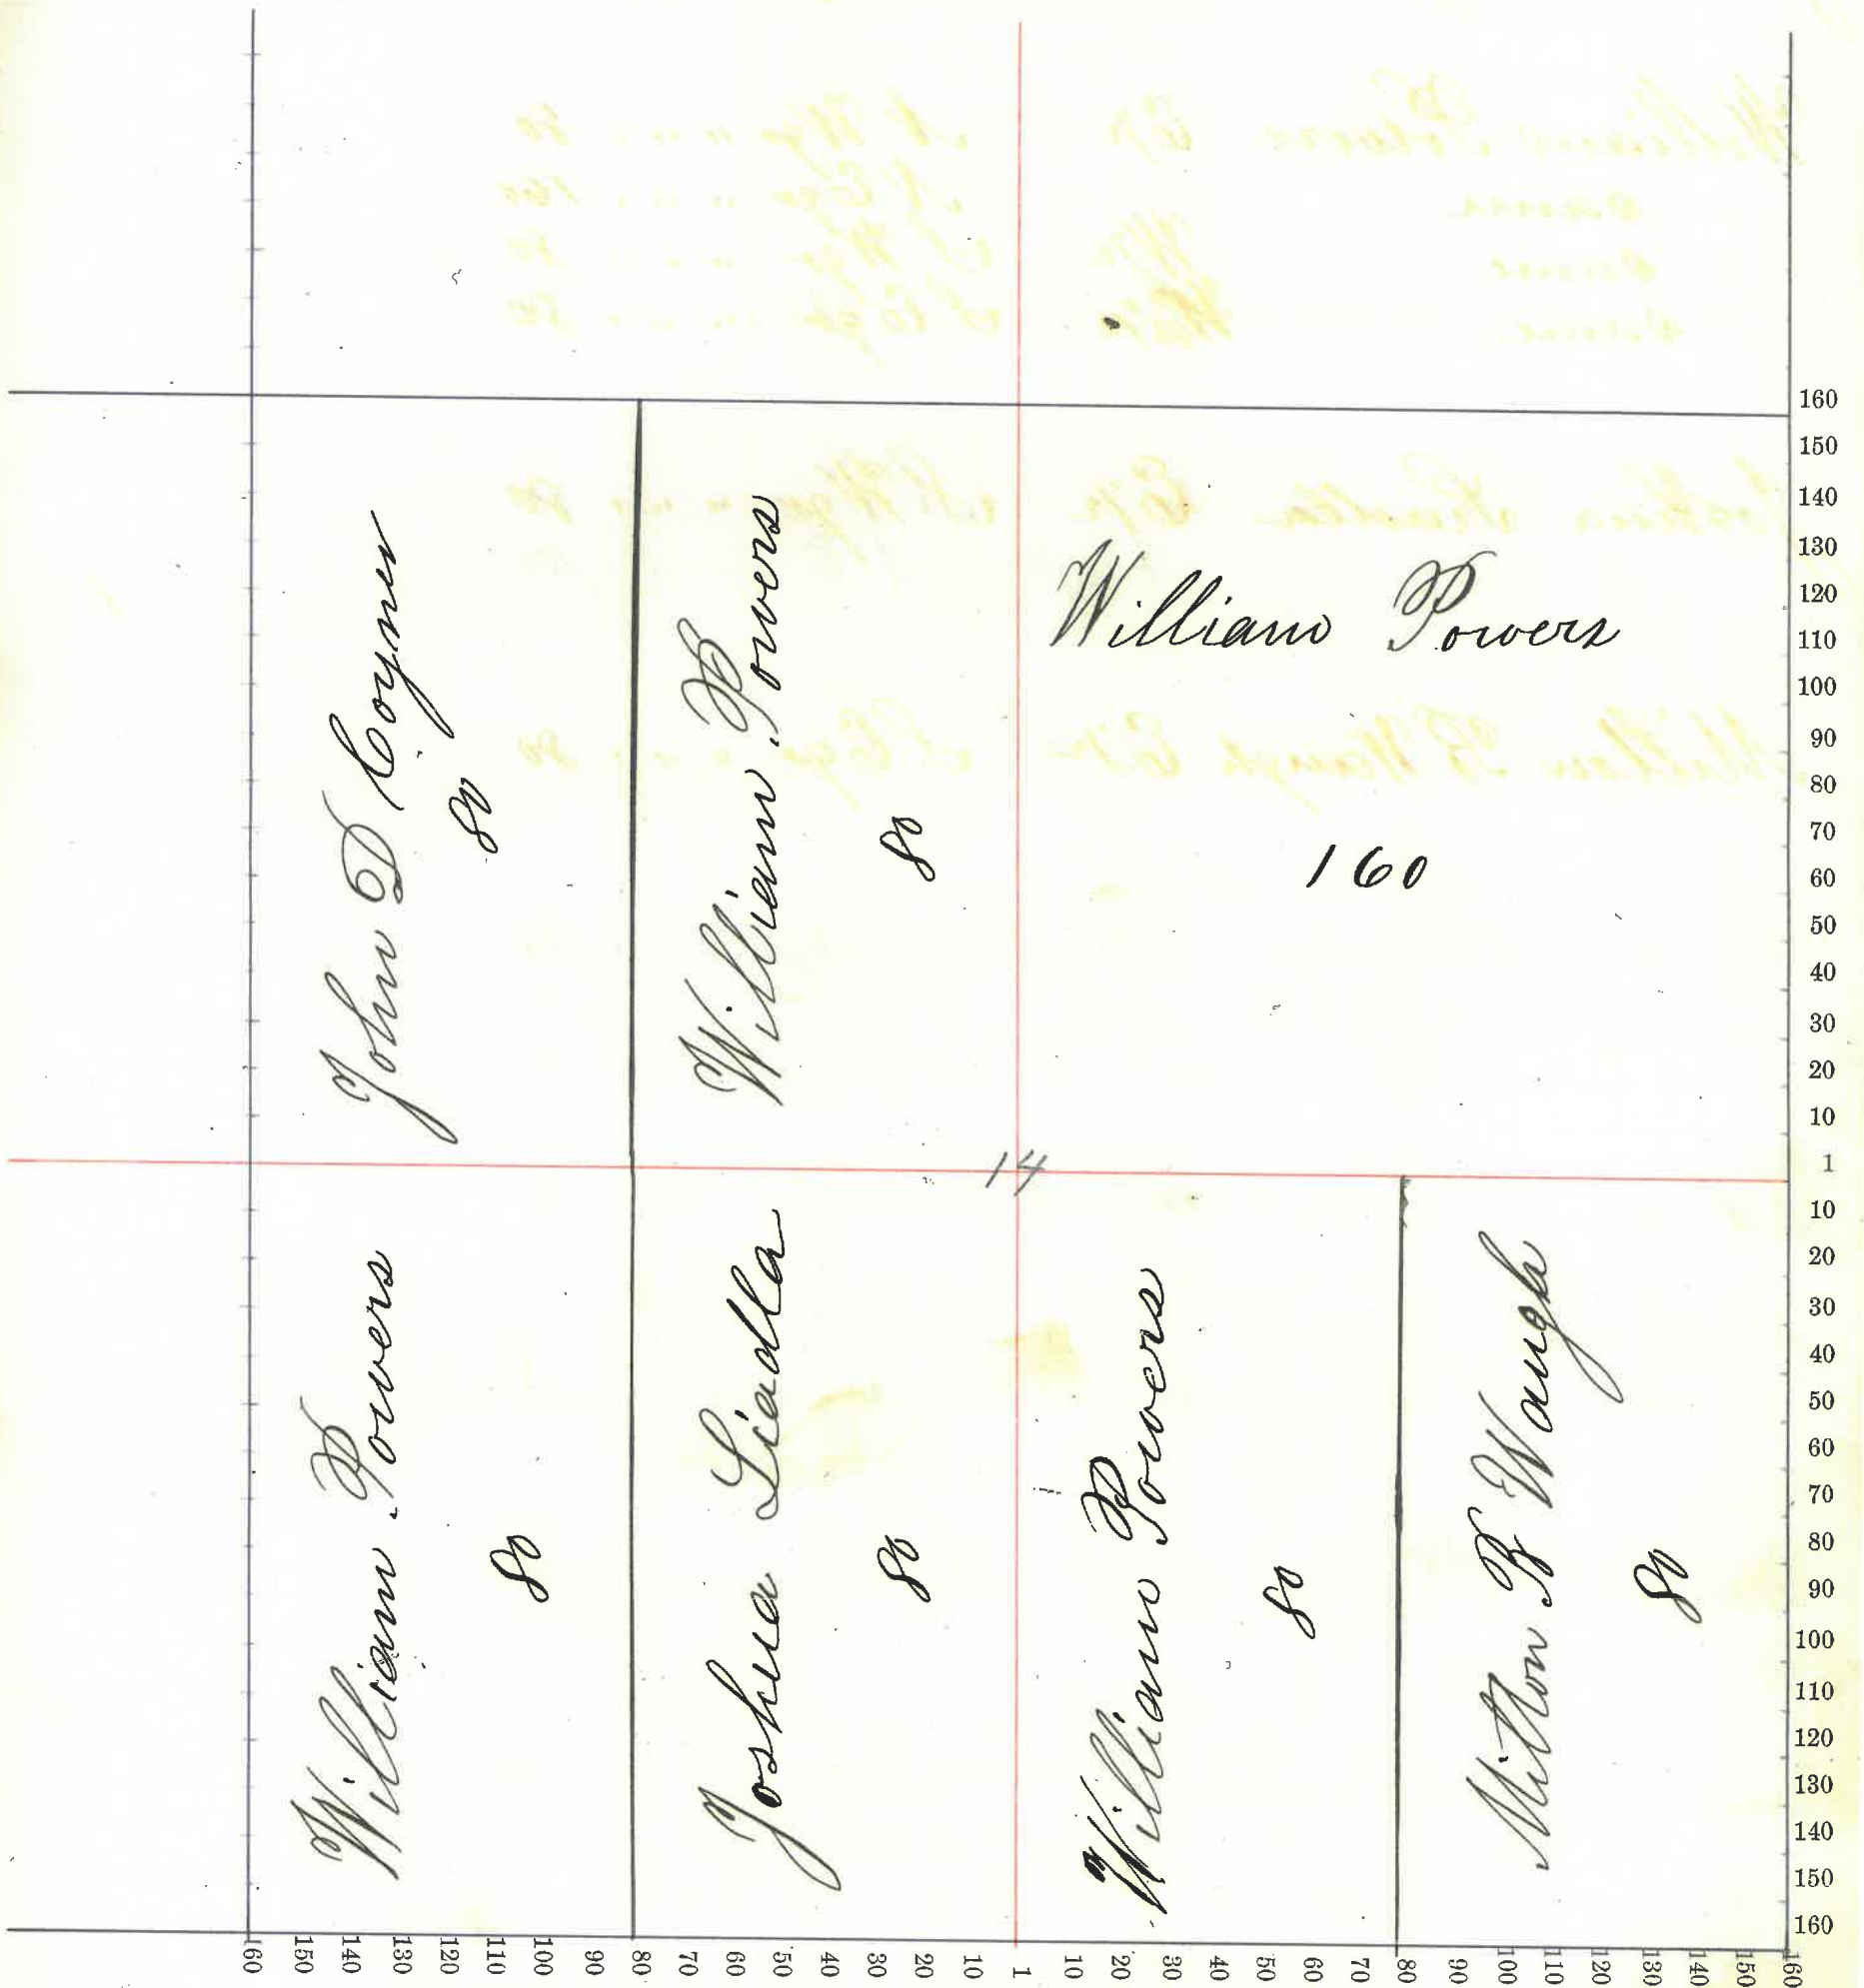 John D Coyner
80
William Powers
80
William Powers
160
14
William Powers
80
Joshua Liadla
80
William Powers
80
Milton B Waugh
80
160
150
140
130
120
110
100
90
80
70
60
50
40
30
20
10
1
10
20
30
40
50
60
70
80
90
100
110
120
130
140
150
160
160 150 140 130 120 110 100 90 80 70 60 50 40 30 20 10 1 10 20 30 40 50 60 70 80 90 100 110 120 130 140 150 160